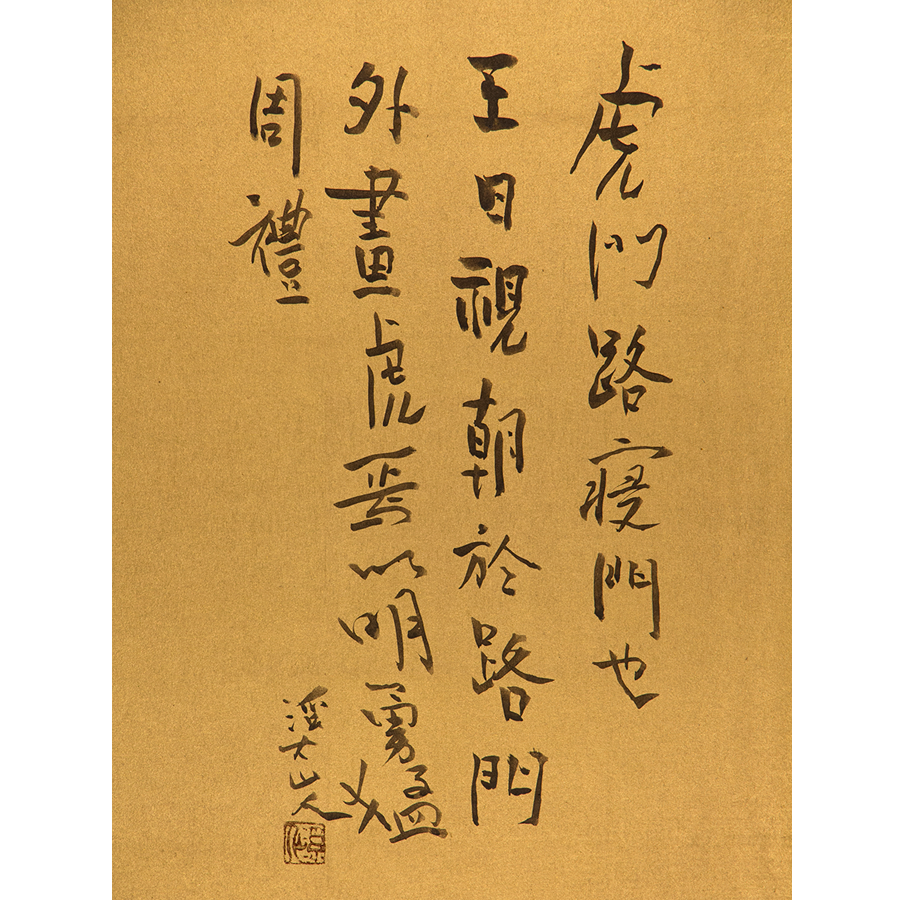 虎門路寢門也
王日視朝於路門
外畫虎焉以明勇猛
周禮
大山人